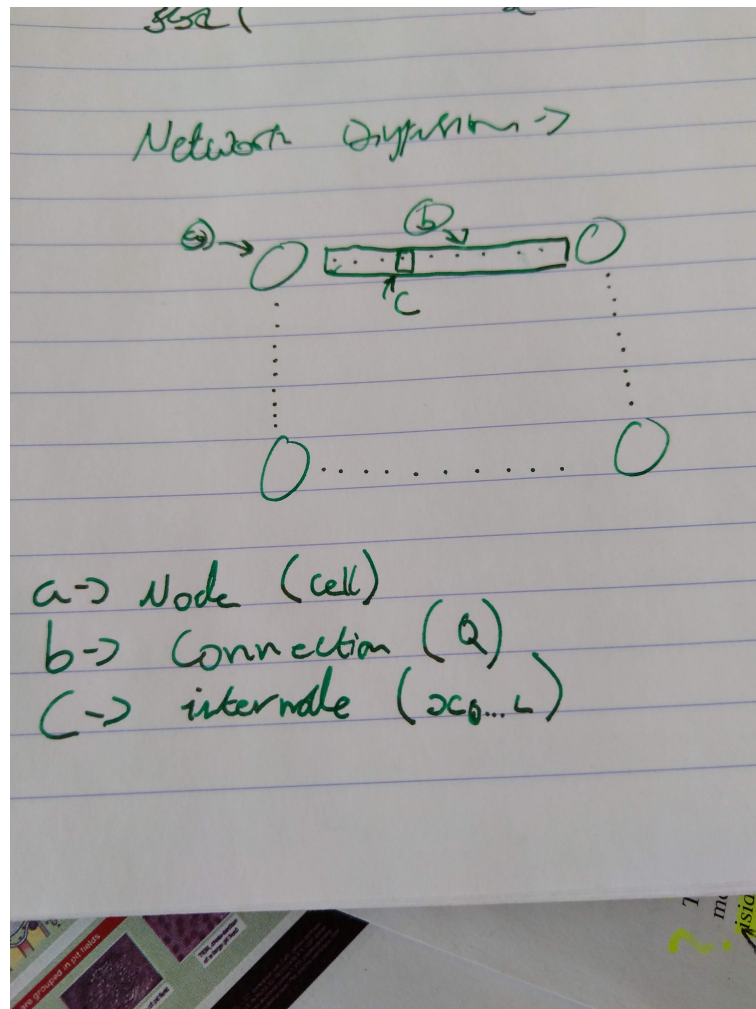 Network Diffusion ->
a ->
b
C
a -> Node (cell)
b -> Connection (Q)
C -> internode (x0...L)
are grouped in pit fields
?